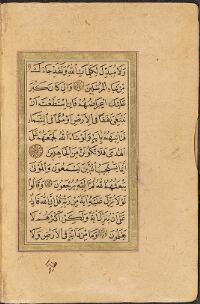 ولا مبدل لكلمات الله ولقد جاءك
من نبإ المرسلين وان كان كبر
عليك اعراضهم فان استطعت ان
تبتغي نفقا في الارض او سلما في السماء
فتأتيهم بآية ولو شاء الله لجمعهم على
الهدى فلا تكونن من الجاهلين
انما يستجيب الذين يسمعون والموتى
يبعثهم الله ثم اليه يرجعون وقالوا
لولا نزل عليه آية من ربه قل ان الله قادر
على ان ينزل آية ولكن اكثرهم لا
يعلمون وما من دابة في الارض ولا